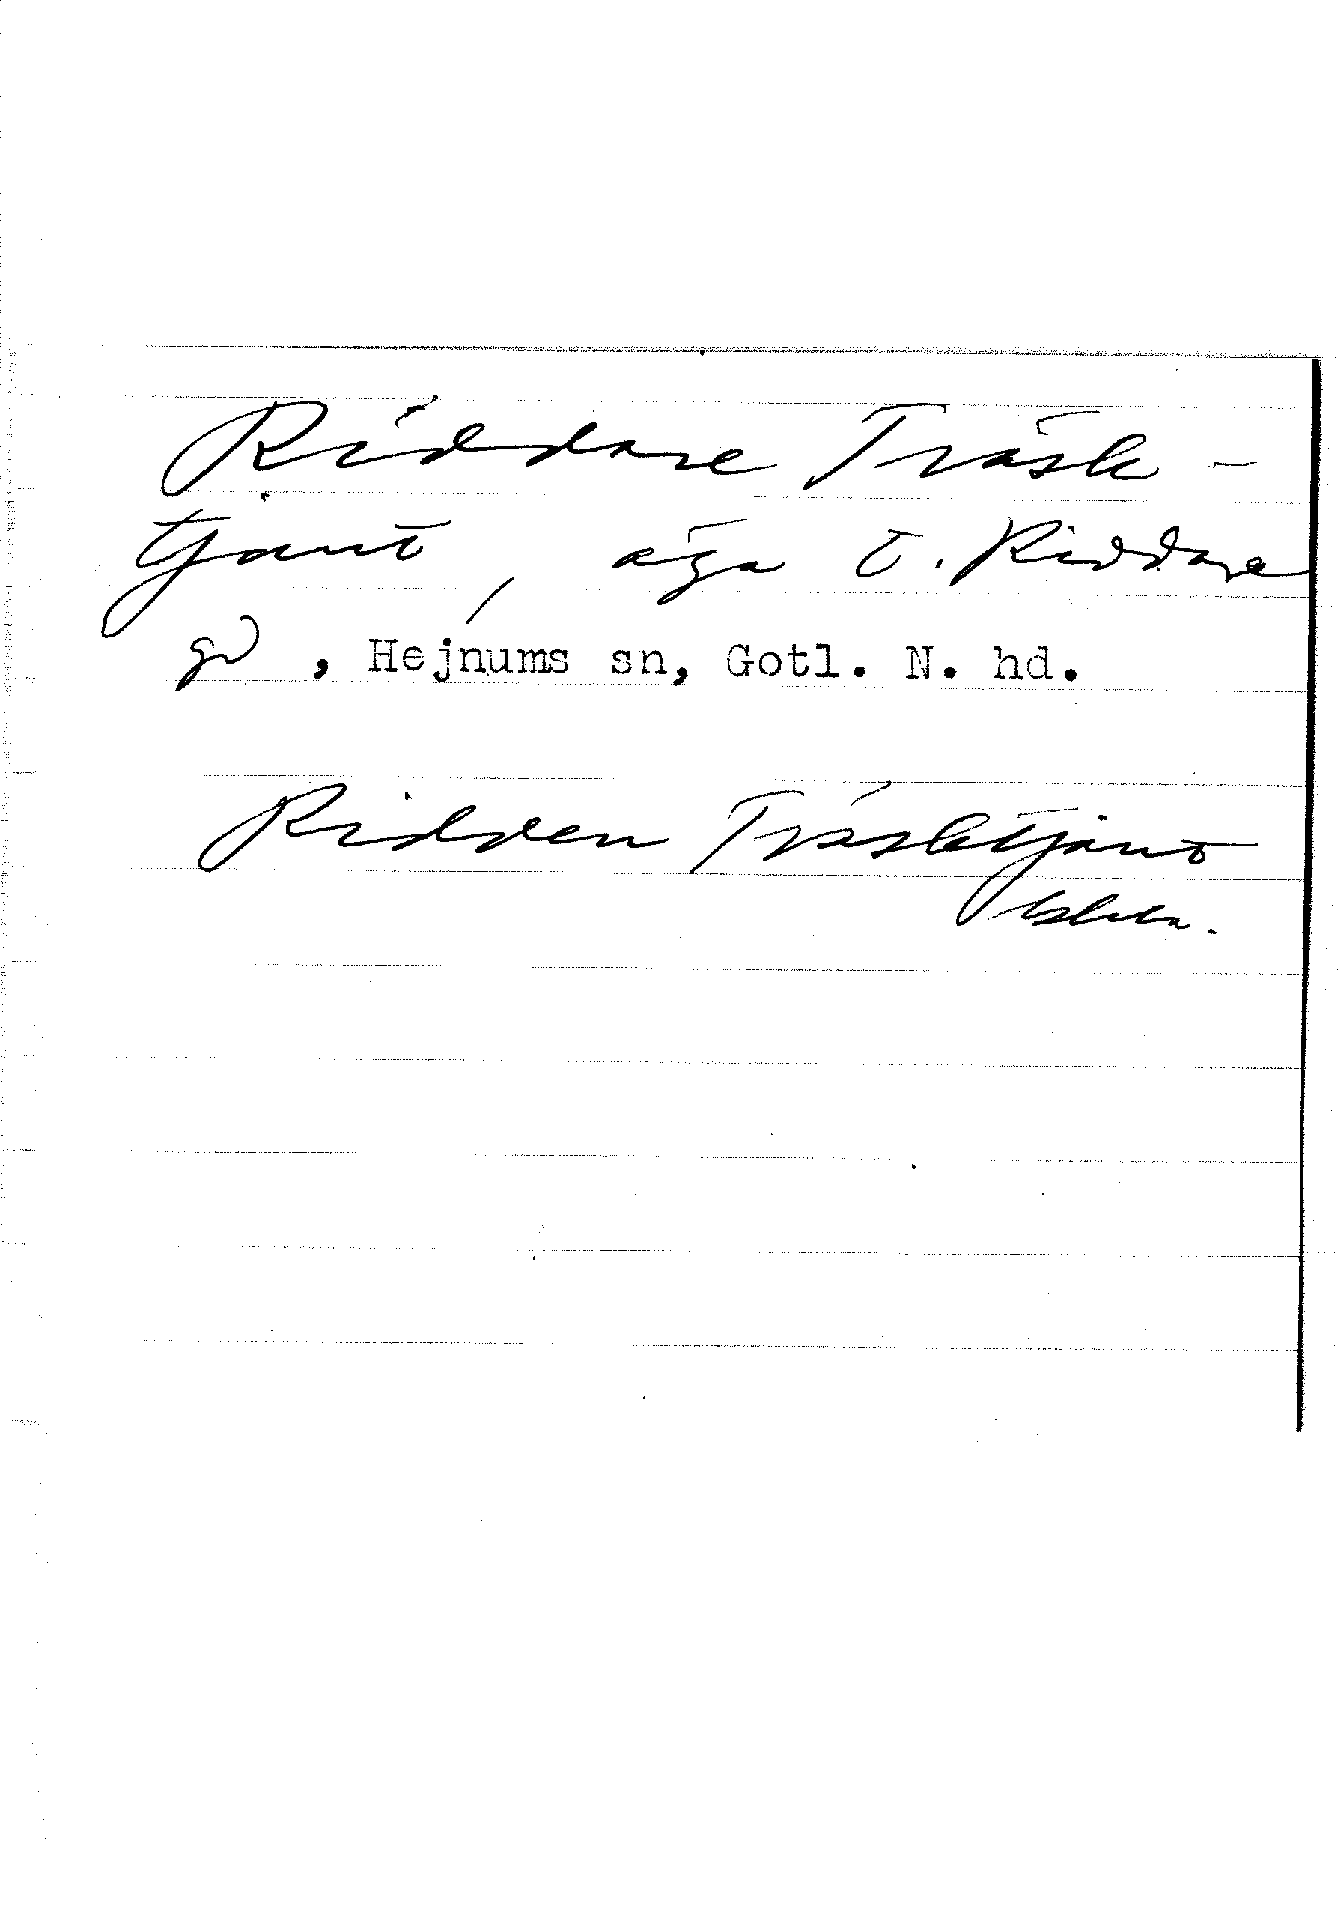 Riddare Träsk-
tjaut, äga t. Riddare
gd, Hejnums sn, Gotl. N. hd.
Ridden Träsktjaut